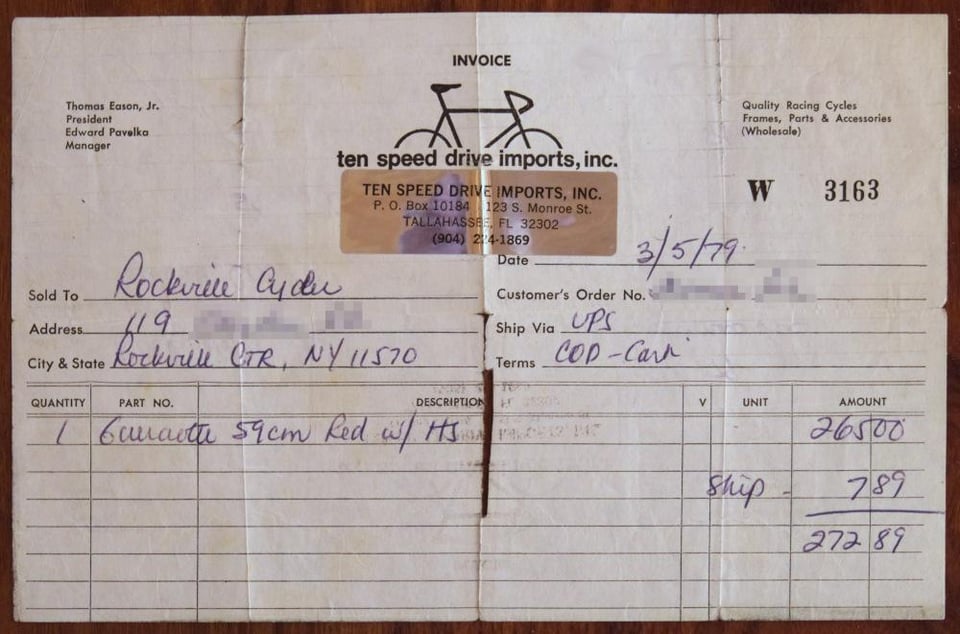 INVOICE
Thomas Eason, Jr.
President
Edward Pavelka
Manager
Quality Racing Cycles
Frames, Parts & Accessories
(Wholesale)
ten speed drive imports, inc.
TEN SPEED DRIVE IMPORTS, INC.
P. O. Box 10184 123 S. Monroe St.
TALLAHASSEE, FL 32302
(904) 224-1869
W 3163
Date 3/5/79
Sold To Rockville
Customer's Order No.
Address 119
Ship Via UPS
City & State Rockville CTR, NY 11570
Terms COD - Cash
QUANTITY PART NO. DESCRIPTION V UNIT AMOUNT
1 59cm Red w/ HS 265 00
Ship - 7 89
272 89